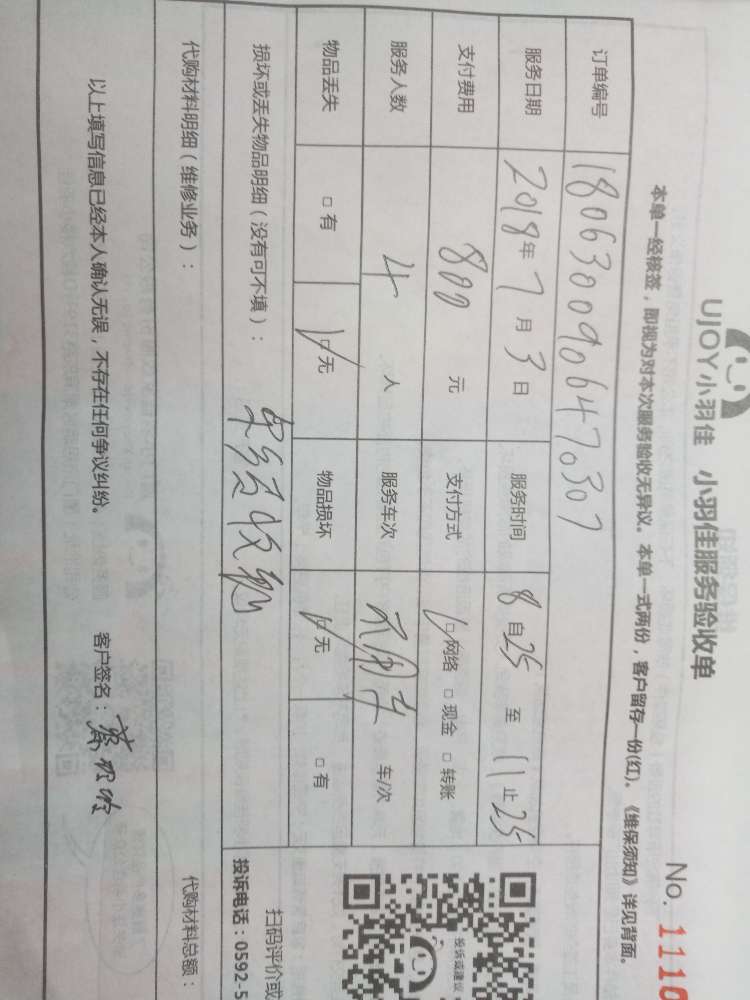 UJOY小羽佳 小羽佳服务验收单
No. 1110
本单一经核签，即视为对本次服务验收无异议。本单一式两份，客户留存一份(红)。《维保须知》详见背面。
订单编号 180630090647307
服务日期 2018年7月3日 服务时间 8自25至11止25
支付费用 800元 支付方式 □网络 □现金 □转账
服务人数 4人 服务车次 车/次
物品丢失 □有 □无 物品损坏 □无 □有
损坏或丢失物品明细（没有可不填）：
代购材料明细（维修业务）：
代购材料总额：
以上填写信息已经本人确认无误，不存在任何争议纠纷。 客户签名：
投诉或建议
扫码评价或
投诉电话：0592-5